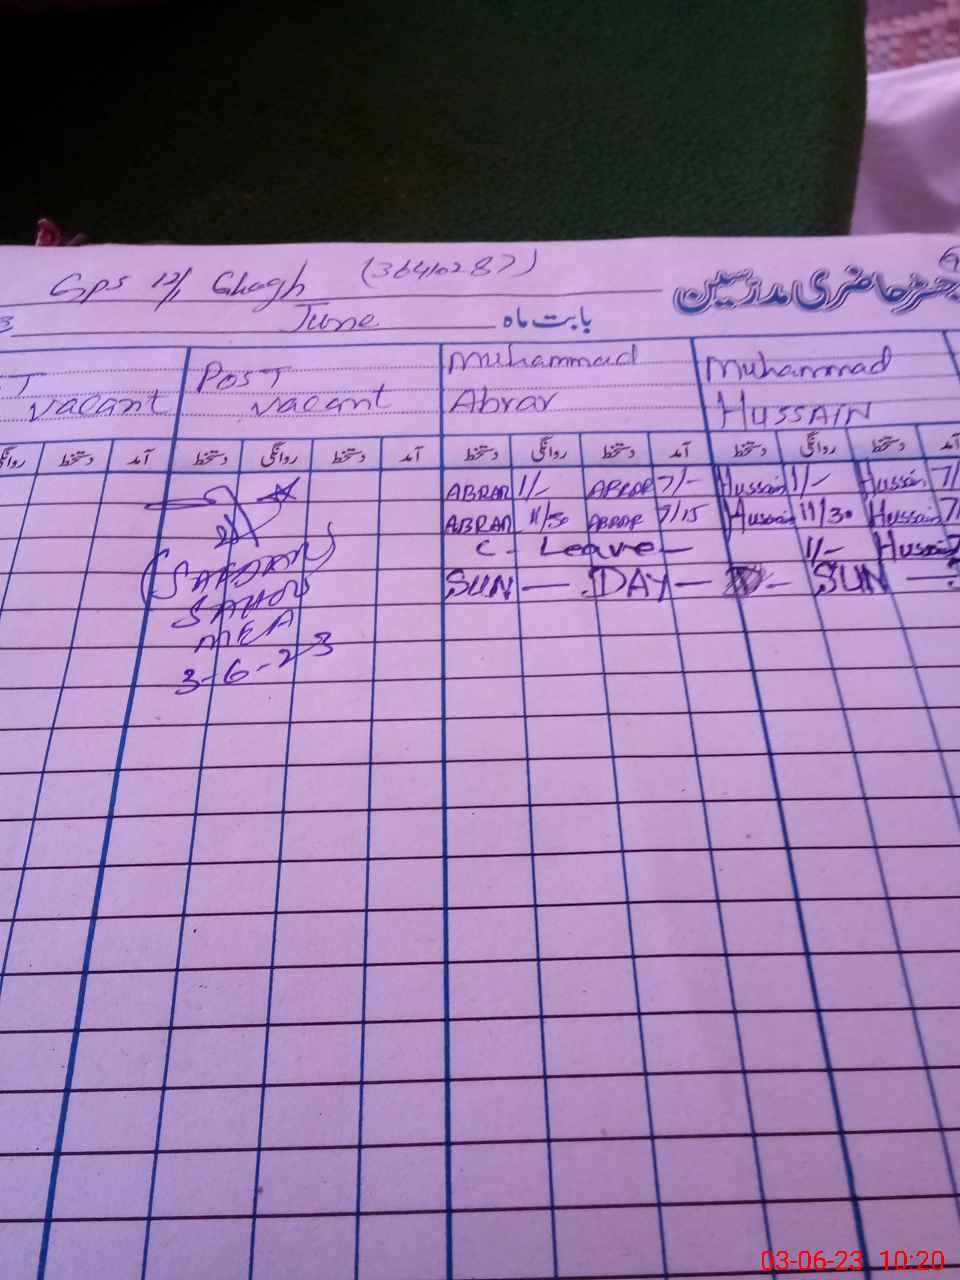 رجسٹر حاضری مدرسین
GPS 12/1 Ghagh (36410287)
بابت ماہ June
Vacant
Post Vacant
Muhammad Abrar
Muhammad HUSSAIN
آمد دستخط روانگی دستخط آمد دستخط روانگی دستخط آمد دستخط روانگی
ABRAR 1/- ABRAR 7/- Hussain 1/- Hussain 7/
ABRAR 11/30 ABRAR 7/15 Hussain 11/30 Hussain 7/
C - Leave - 1/- Hussain 7
SUN - DAY - SUN -
MEA
3-6-23
03-06-23 10:20